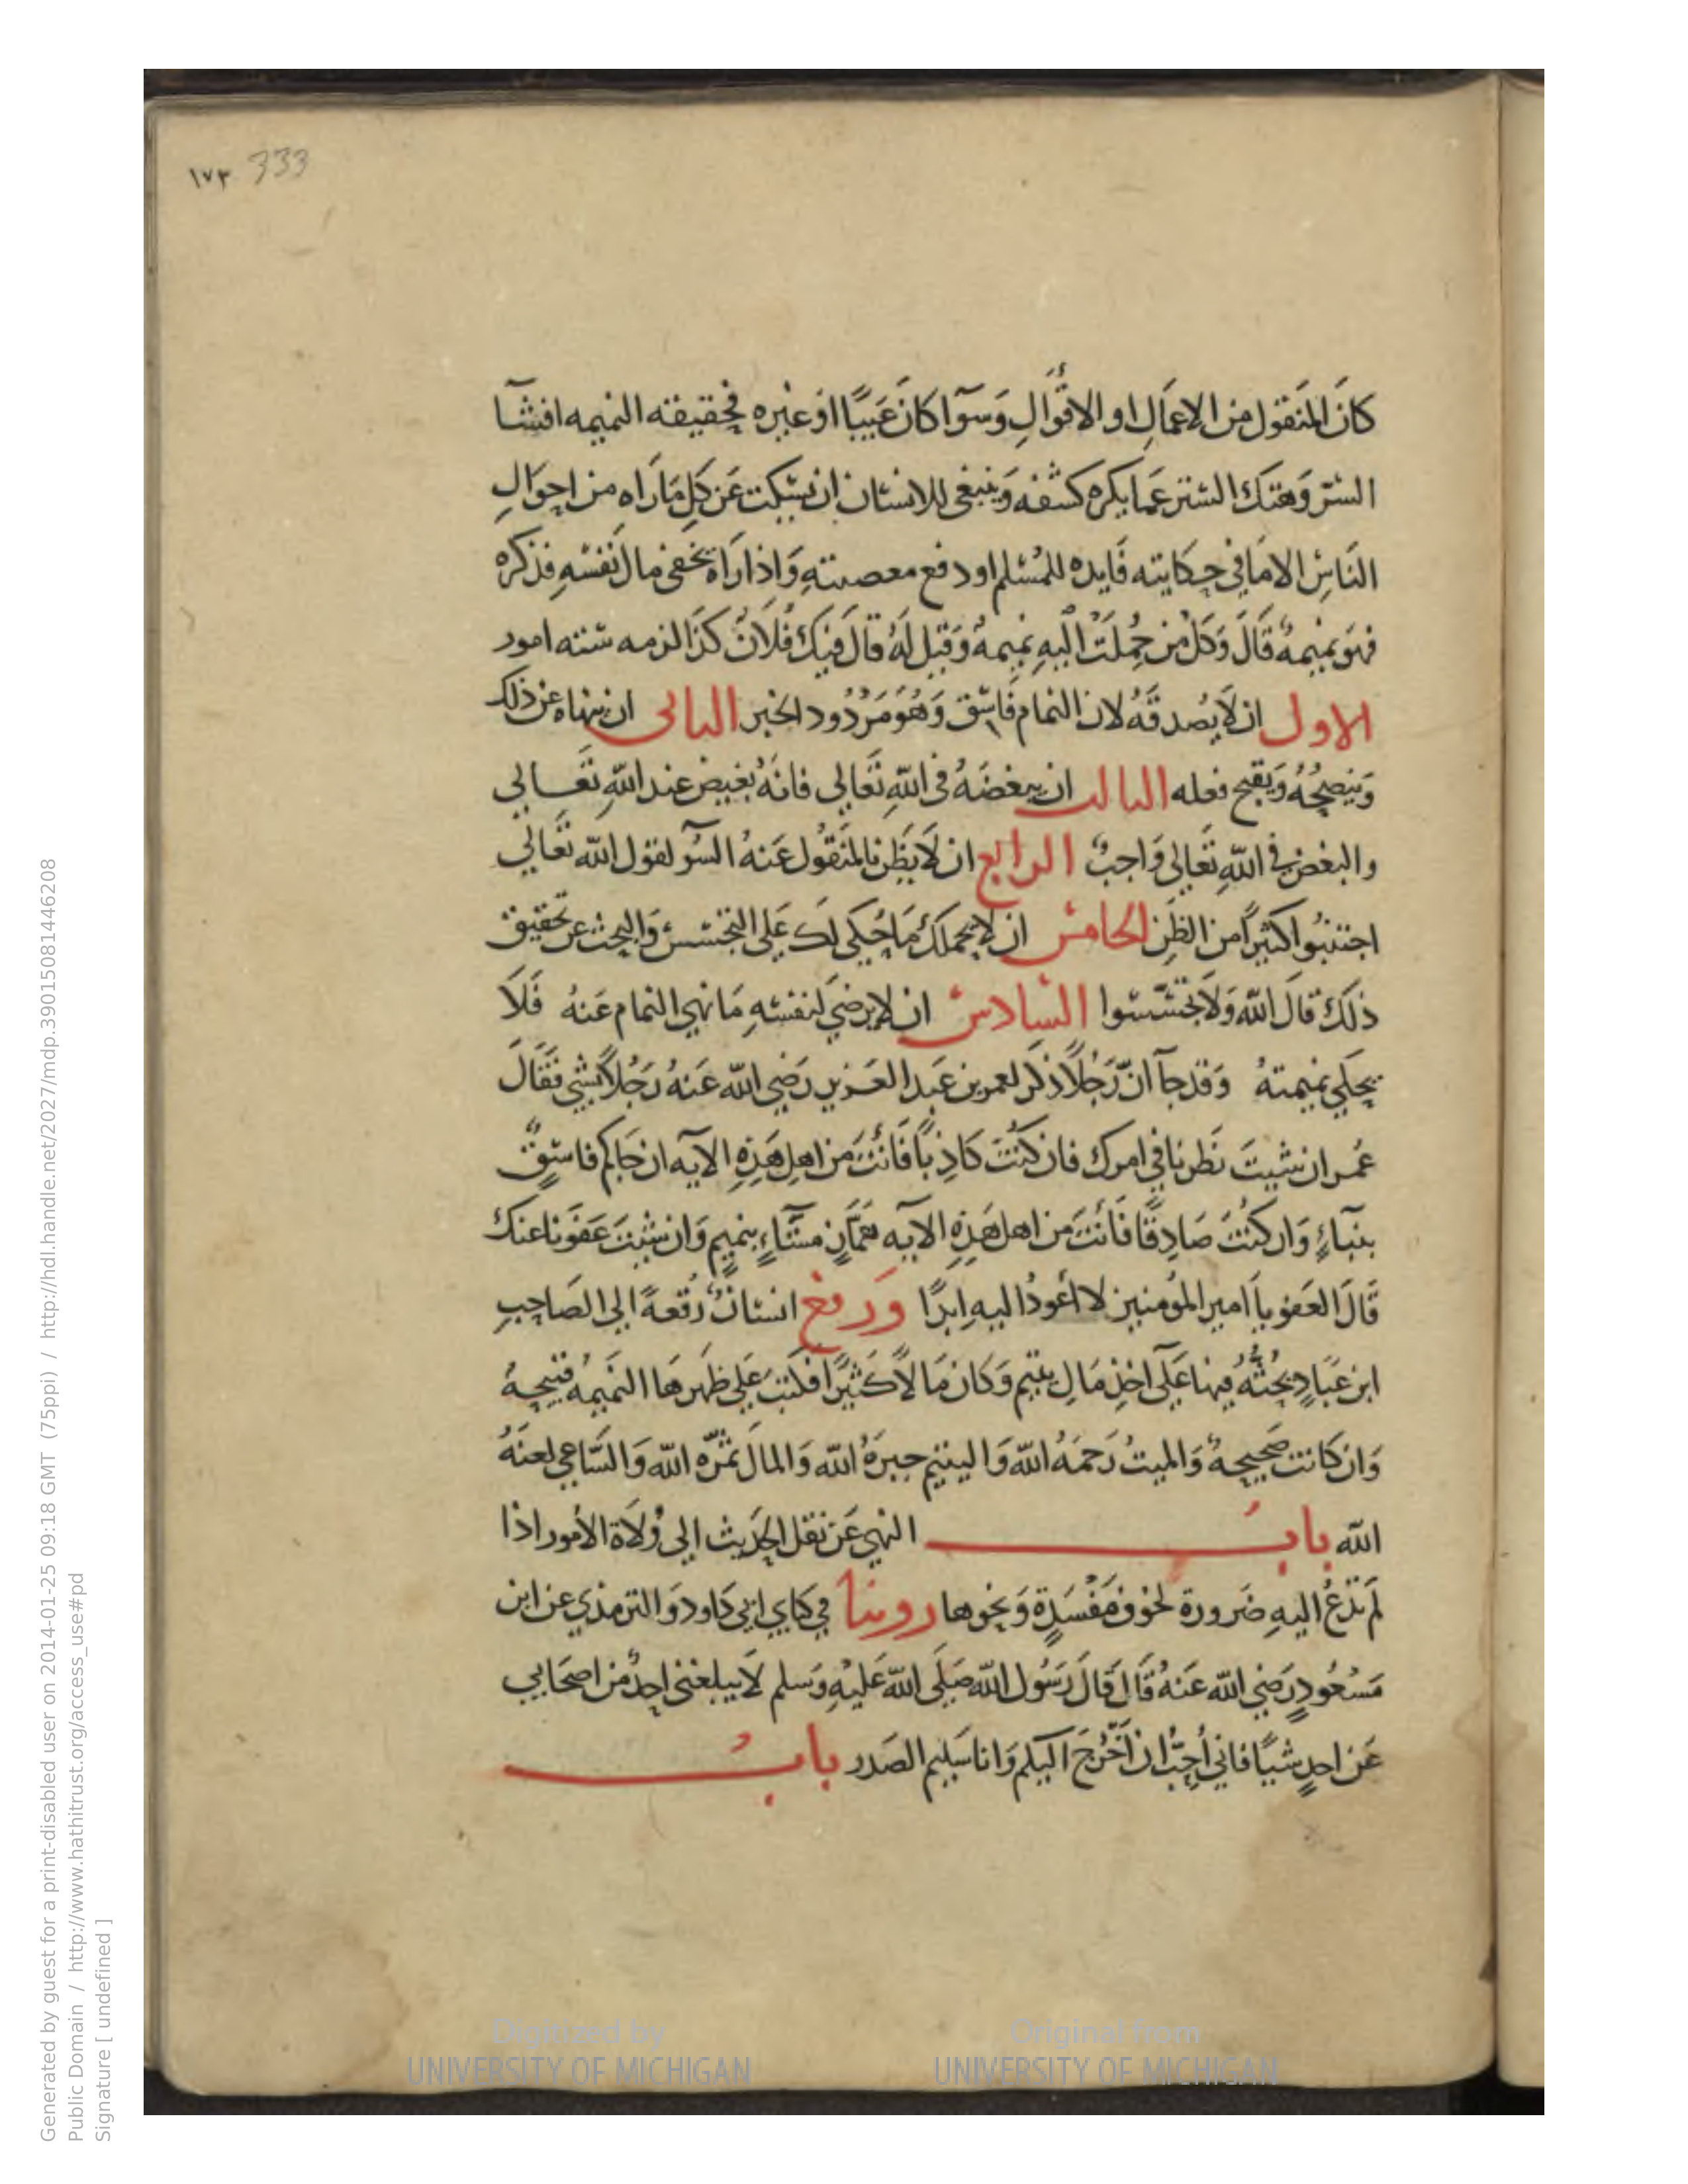 ١٧٣ 333
كانَ المنَقول من الاعمَالِ او الاقوَالِ وَسوآ كانَ عَيبًا اوْ غيره فحقيقته النميمه افشآ
السّر وَهتكَ الستر عَما يكره كشفه وَينبغي للانسان ان يسكت عَن كلِ مَا رَاه من احوَالِ
النَاسِ الا مَا في حكايته فَايده للمُسلم او دفع معصيتهِ وَاذا رَاهُ يخفي مال نَفسهِ فذكره
فهوَ نميمهٌ قَالَ وَكل من حُملَتْ اليهِ نميمهٌ وَقيل لَهُ قال فيكَ فُلاَنٌ كذَا لزمه سته امور
الاول ان لاَ يُصدقَهُ لان النمام فَاسّق وَهُوَ مَرْدُود الخبر الثانى ان ينهاه عن ذلك
وَينصحُهُ وَيقبح فعله الثالث ان يبغضَهُ في اللّهِ تَعَالي فانهُ بغيض عند اللّهِ تعَالي
والبغض في اللّهِ تَعَالي وَاجبٌ الرابع ان لاَ يظَن بالمنَقُول عَنهُ السُوٓ لقول اللّه تعَالَي
اجتنبُوا كثيرًا من الظَنِ الخامس ان لا يحملكَ مَا حُكي لَك عَلي التجسس وَالبحث عن تحقيق
ذلكَ قالَ اللّه وَلاَ تجسّسُوا السادس ان لا يرضي لنفسهِ مَا نهي النمام عَنهُ فَلاَ
يحكي نميمتهُ وَقد جآ انّ رَجُلاً ذكَر لعمر بن عَبد العَزيز رَضي اللّه عَنهُ رَجُلاً بشي فقَالَ
عُمر ان شيتَ نَظرنا في امرك فان كنُتَ كَاذِبًا فَانتَ من اهلِ هَذِهِ الايه ان جَاكم فاسِقٌ
بنبَاءٍ وَان كنُتَ صَادِقًا فَانتَ من اهل هَذِهِ الايه همَّازٍ مشّآءٍ بنميمٍ وَان شيتَ عَفوَنا عنك
قَالَ العَفو يا امير المؤمنين لا اعُودُ اليه ابدًا وَرفع انسَانٌ رُقعةً الي الصَاحِبِ
ابن عَبَادٍ يحثُّهُ فيها عَلَي اخذِ مَالِ يتيم وَكان مَالاً كثيرًا فكتبَ عَلي ظَهرهَا النميمهُ قبيحةٌ
وَان كانت صَحيحةٌ وَالميتُ رَحمَهُ اللّه وَاليتيم جبرهُ اللّه وَالمالَ ثمّرهُ اللّه وَالسَّاعي لعنهُ
اللّه بابُ النهي عَن نقل الحَديث الي وُلاَة الأمور اذا
لم تدْعُ اليهِ ضَرورة لخوَف مَفْسَدةٍ وَنحوها روينا في كتابي ابي دَاود وَالترمذي عن ابن
مَسْعُودٍ رَضي اللّه عَنهُ قَالَ قَالَ رَسُول اللّه صَلَي اللّه عَليْهِ وَسلم لاَ يبلغني احدٌ من اصحَابي
عَن احدٍ شيًا فاني أُحبُّ ان أَخْرُجَ اليكم وَانا سَليم الصَدر بابُ
Digitized by
UNIVERSITY OF MICHIGAN
Original from
UNIVERSITY OF MICHIGAN
Generated by guest for a print-disabled user on 2014-01-25 09:18 GMT (75ppi) / http://hdl.handle.net/2027/mdp.39015081446208
Public Domain / http://www.hathitrust.org/access_use#pd
Signature [ undefined ]